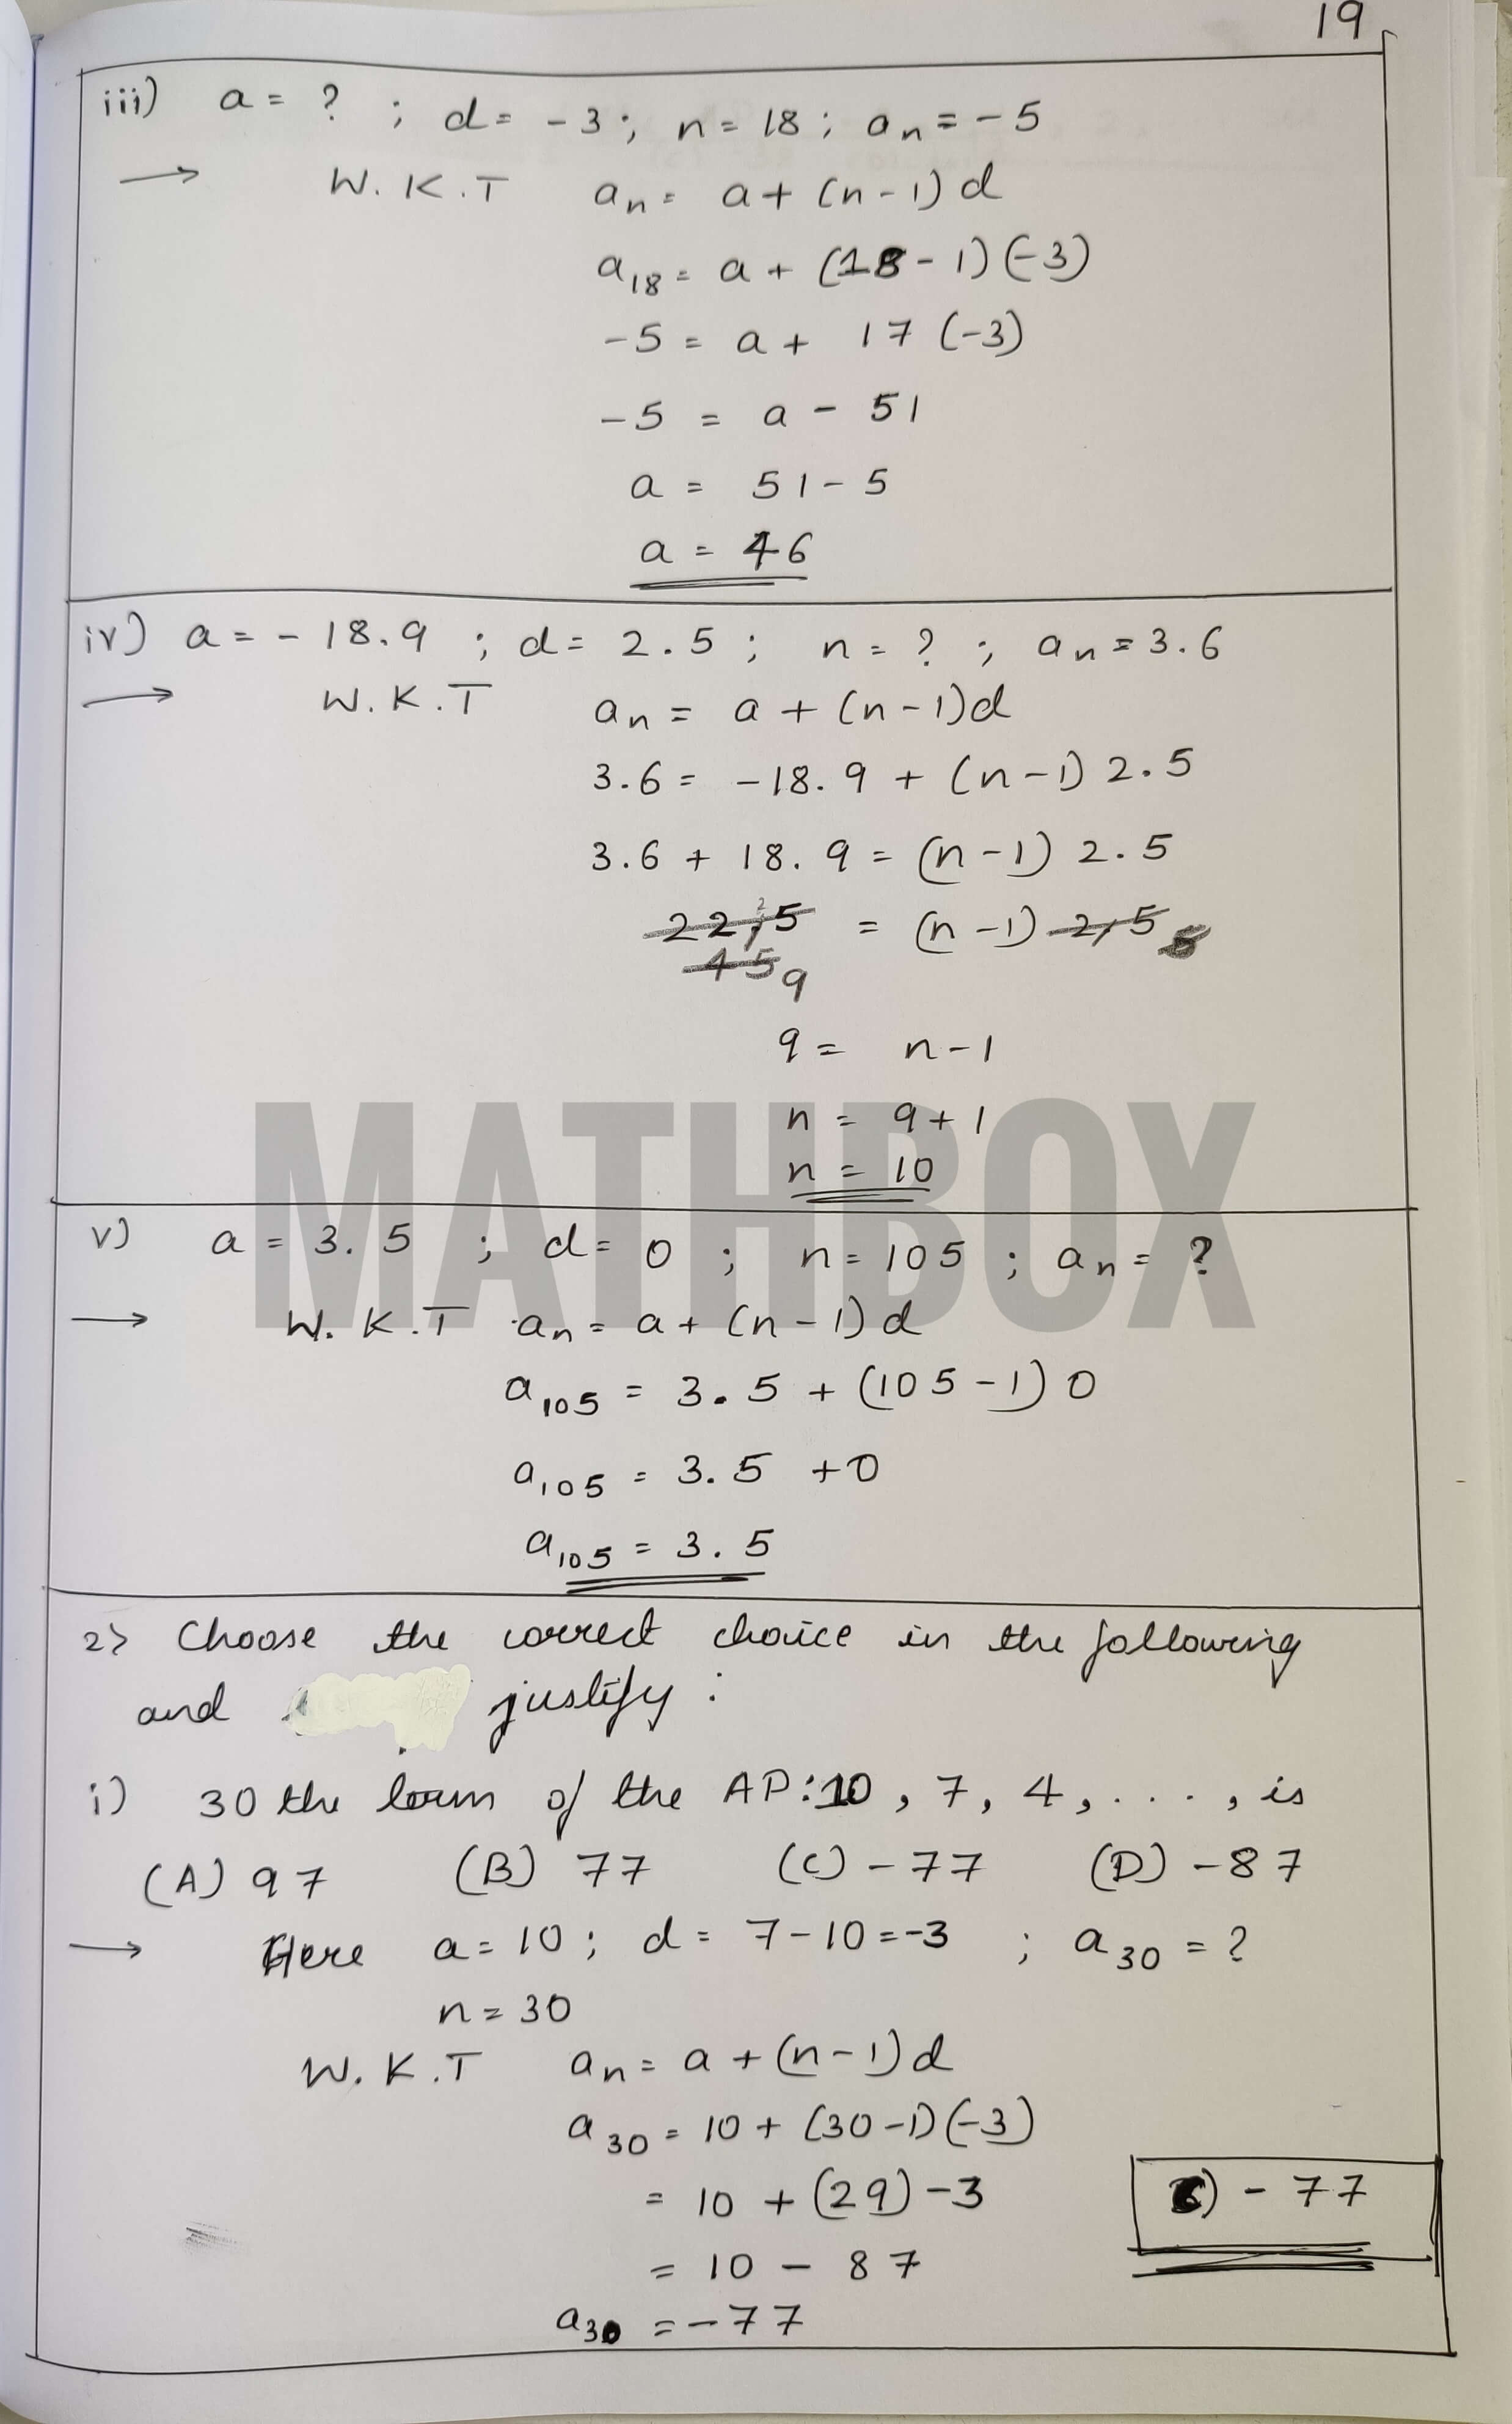 19
iii) a = ? ; d = -3 ; n = 18 ; an = -5
→ W.K.T an = a + (n-1) d
a18 = a + (18-1) (-3)
-5 = a + 17 (-3)
-5 = a - 51
a = 51-5
a = 46
iv) a = -18.9 ; d = 2.5 ; n = ? ; an = 3.6
→ W.K.T an = a + (n-1)d
3.6 = -18.9 + (n-1) 2.5
3.6 + 18.9 = (n-1) 2.5
22.5 = (n-1) 2.5
45 9
9 = n-1
n = 9+1
n = 10
MATHBOX
v) a = 3.5 ; d = 0 ; n = 105 ; an = ?
→ W.K.T an = a + (n-1) d
a105 = 3.5 + (105-1) 0
a105 = 3.5 +0
a105 = 3.5
2> Choose the correct choice in the following
and justify :
i) 30 the term of the AP: 10, 7, 4, . . . , is
(A) 97 (B) 77 (C) -77 (D) -87
→ Here a = 10 ; d = 7-10 = -3 ; a30 = ?
n = 30
W.K.T an = a + (n-1) d
a30 = 10 + (30-1) (-3)
= 10 + (29) -3
= 10 - 87
a30 = -77
C) - 77